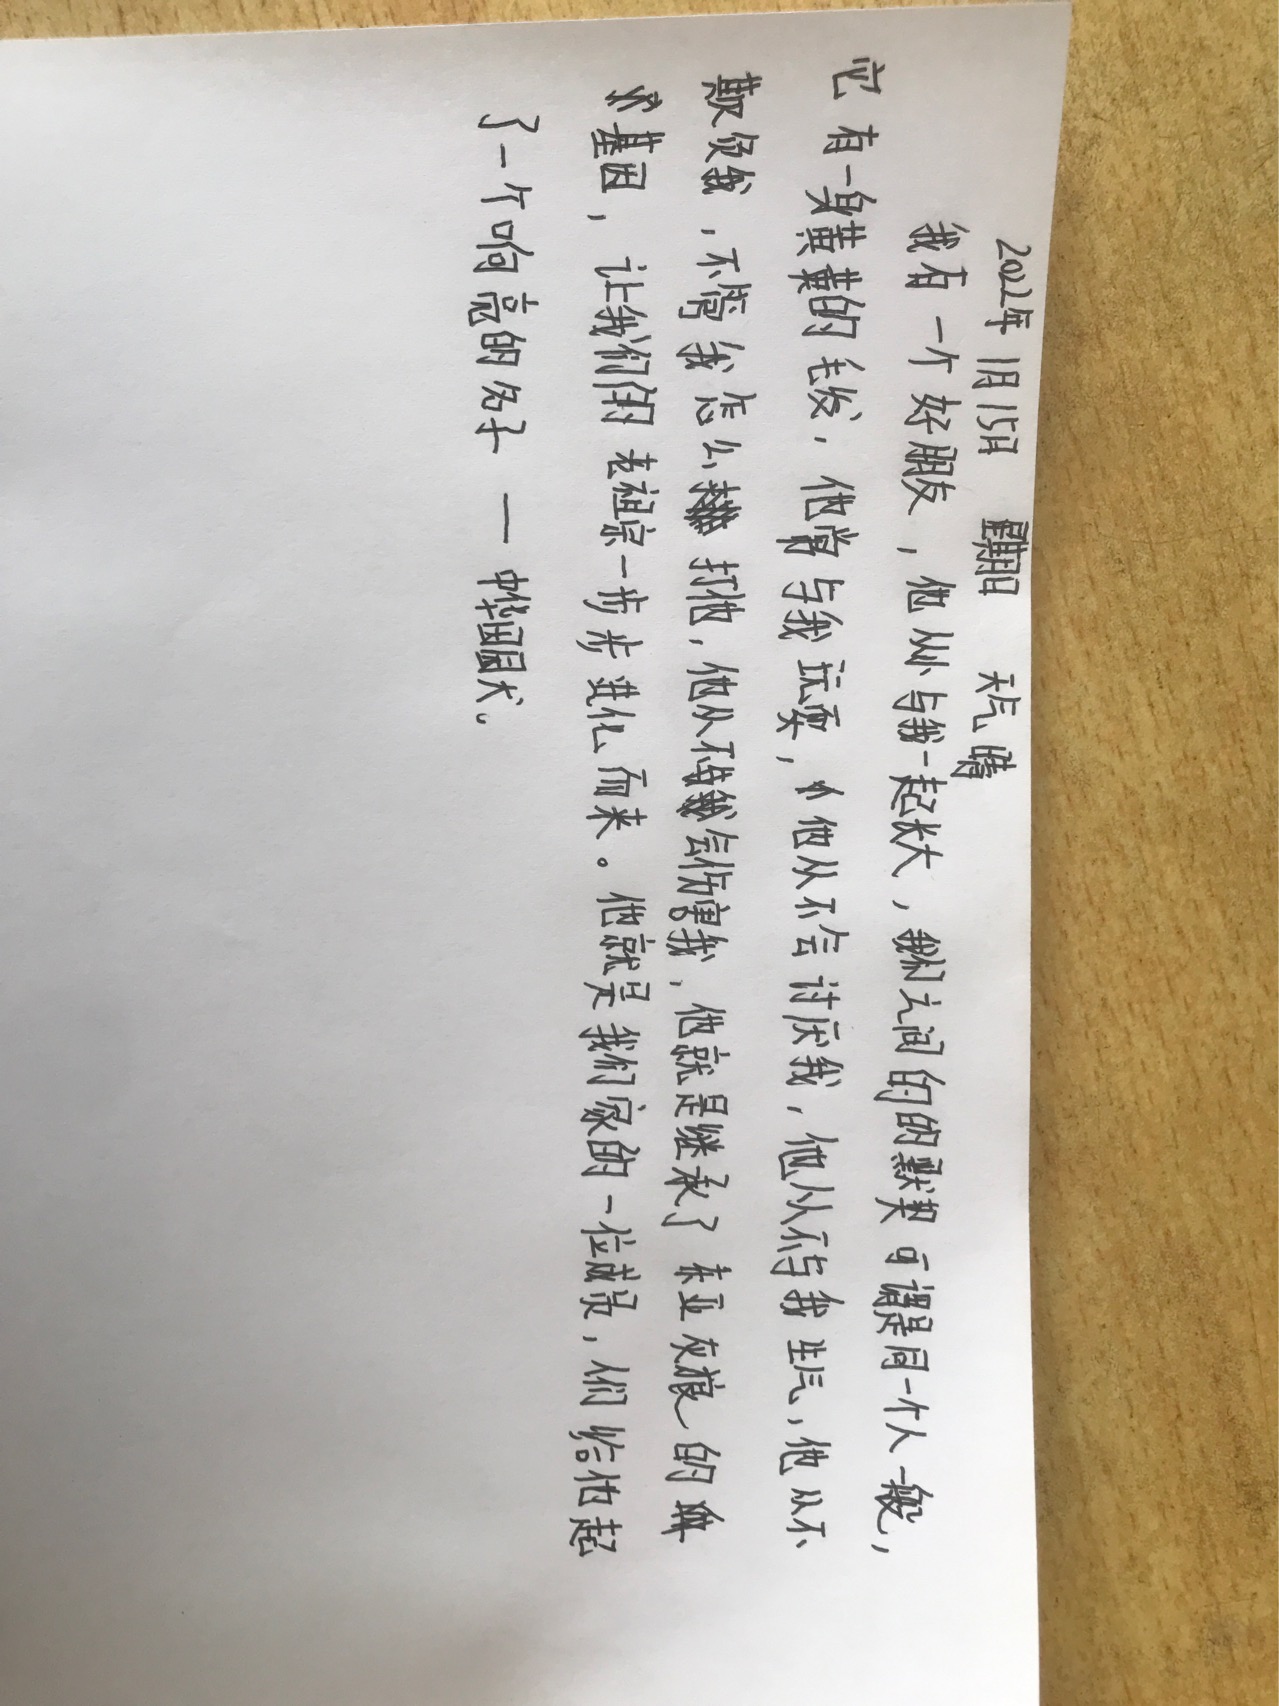 2022年 1月15日 星期日 天气晴
我有一个好朋友，他从小与我一起长大，我们之间的的默契可谓是同一个人一般，
它有一身黄黄的毛发，他常与我玩耍，他从不会讨厌我，他从不与我生气，他从不
欺负我，不管我怎么打他，他从不会伤害我，他就是继承了东亚灰狼的
基因，让我们的老祖宗一步步进化而来。他就是我们家的一位成员，人们给他起
了一个响亮的名子——中华田园犬。